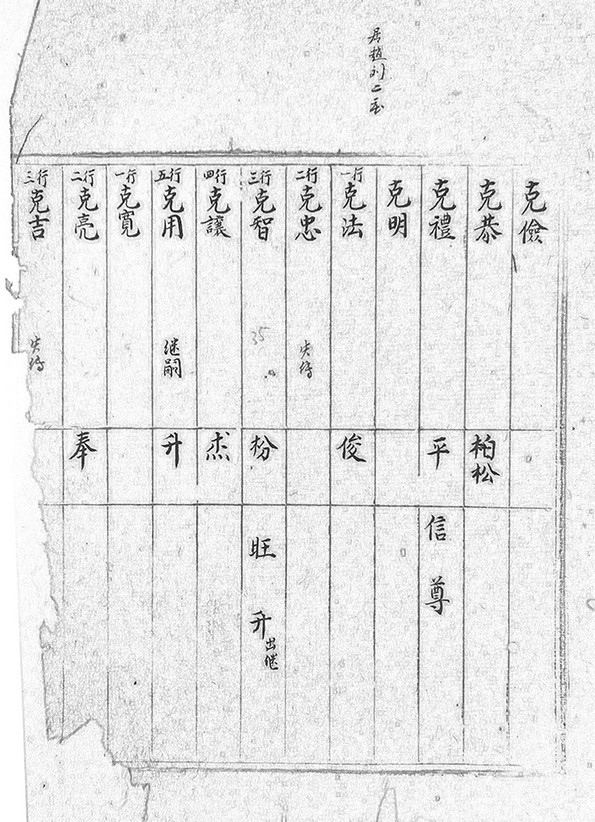 居趙刘二至
克儉
克恭 柏松
克禮 平 信 尊
克明
行一 克法 俊
行二 克忠 失傳
行三 克智 35 枌 旺 升 出继
行四 克讓 杰
行五 克用 继嗣 升
行一 克寬
行二 克亮 奉
行三 克吉 失傳